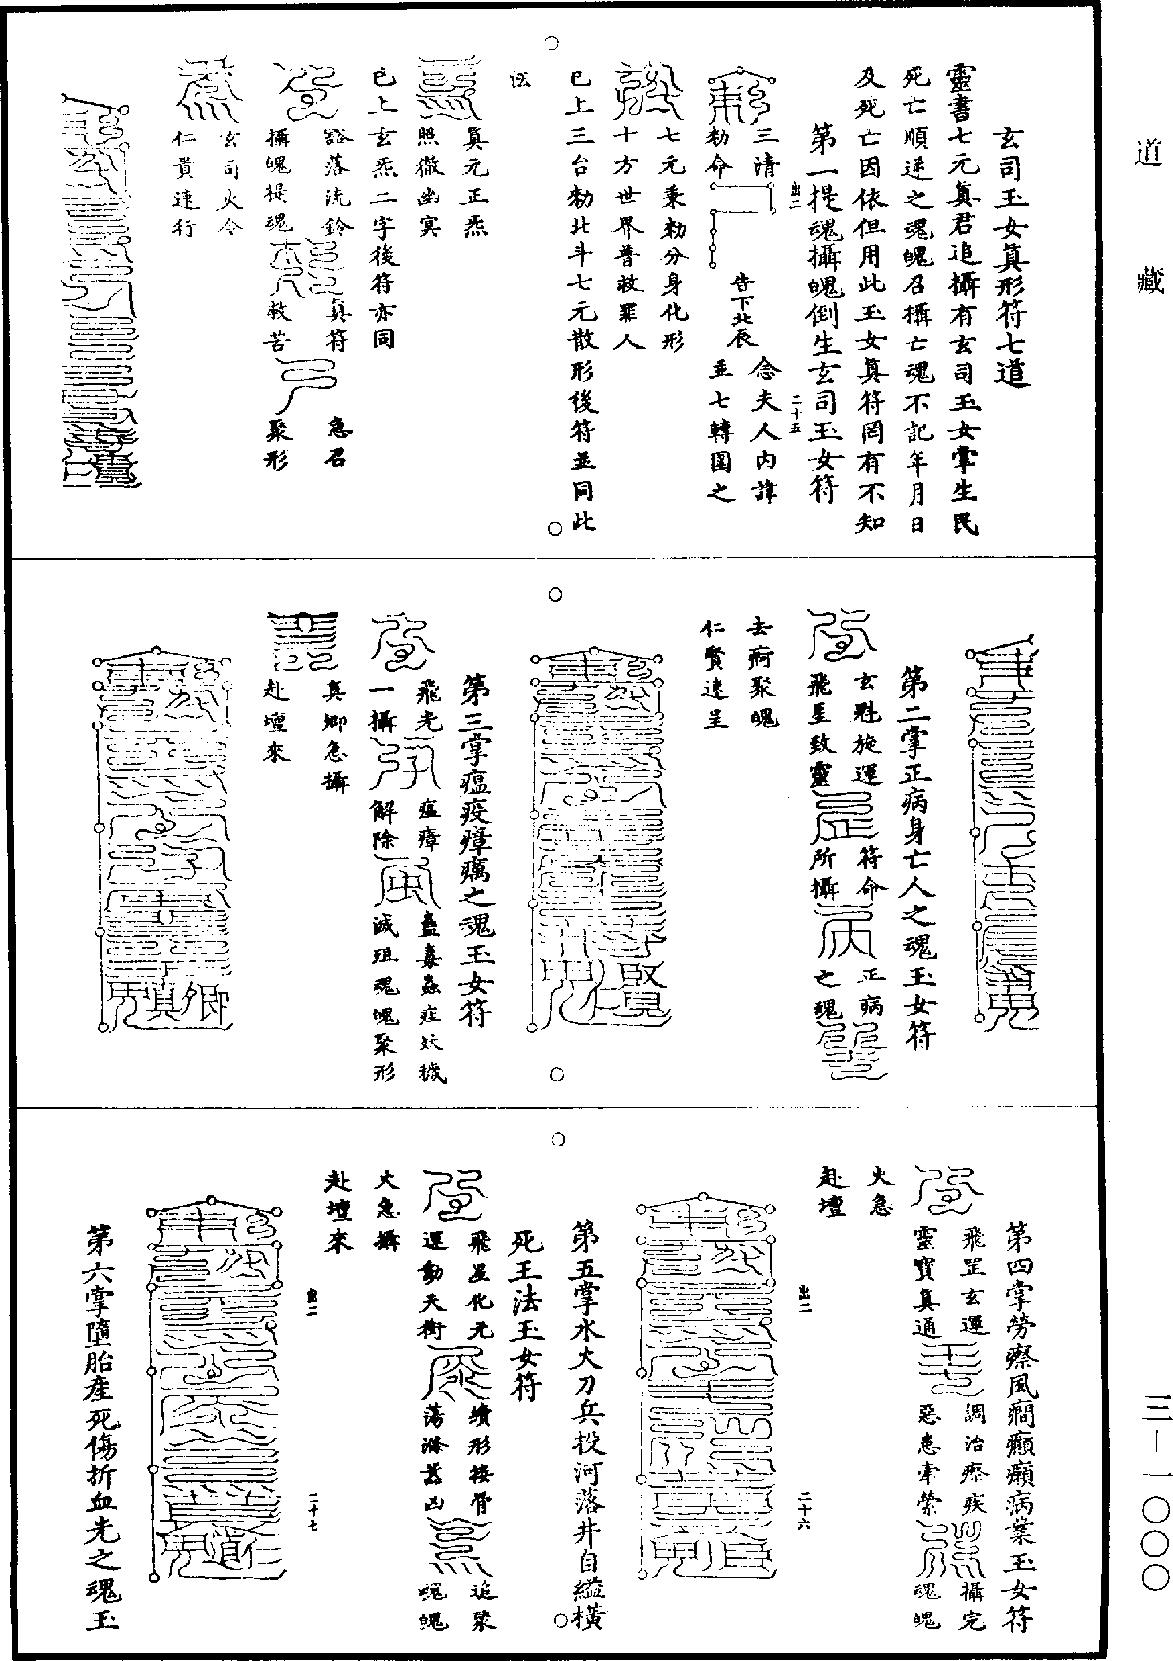 道藏
三一一〇〇〇
玄司玉女真形符七道
靈書七元真君追攝有玄司玉女掌生民
死亡順逆之魂魄召攝亡魂不記年月日
及死亡因依但用此玉女真符罔有不知
第一提魂攝魄倒生玄司玉女符
出二
二十五
三清
勑命
告下北辰
念夫人內諱
並七轉圍之
七元秉勑分身化形
十方世界普救罪人
已上三台勑北斗七元散形後符並同此
法
真元正炁
照徹幽冥
已上玄炁二字後符亦同
豁落流鈴
攝魄提魂
真符
救苦
急召
聚形
玄司火令
仁貴速行
第二掌正病身亡人之魂玉女符
玄魁旋運
飛星致靈
符命
所攝
正病
之魂
去痾聚魄
仁賢速呈
第三掌瘟疫瘴癘之魂玉女符
飛光
一攝
瘟瘴
解除
蠱毒蟲疰妖機
滅殂魂魄聚形
真卿急攝
赴壇來
第四掌勞瘵風癇癲癩病業玉女符
飛罡玄運
靈寶真通
調治療疾
惡患牽縈
攝完
魂魄
火急
赴壇
出二
二十六
第五掌水火刀兵投河落井自縊橫
死王法玉女符
飛星化元
運動天衡
續形接骨
蕩滌舊凶
追聚
魂魄
火急攝
赴壇來
出二
二十七
第六掌墮胎產死傷折血光之魂玉